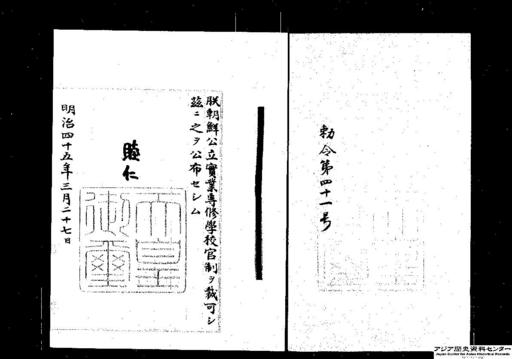 勅令第四十一号
朕朝鮮公立實業専修學校官制ヲ裁可シ
茲ニ之ヲ公布セシム
睦仁
天皇御璽
明治四十五年三月二十七日
アジア歴史資料センター
Japan Center for Asian Historical Records